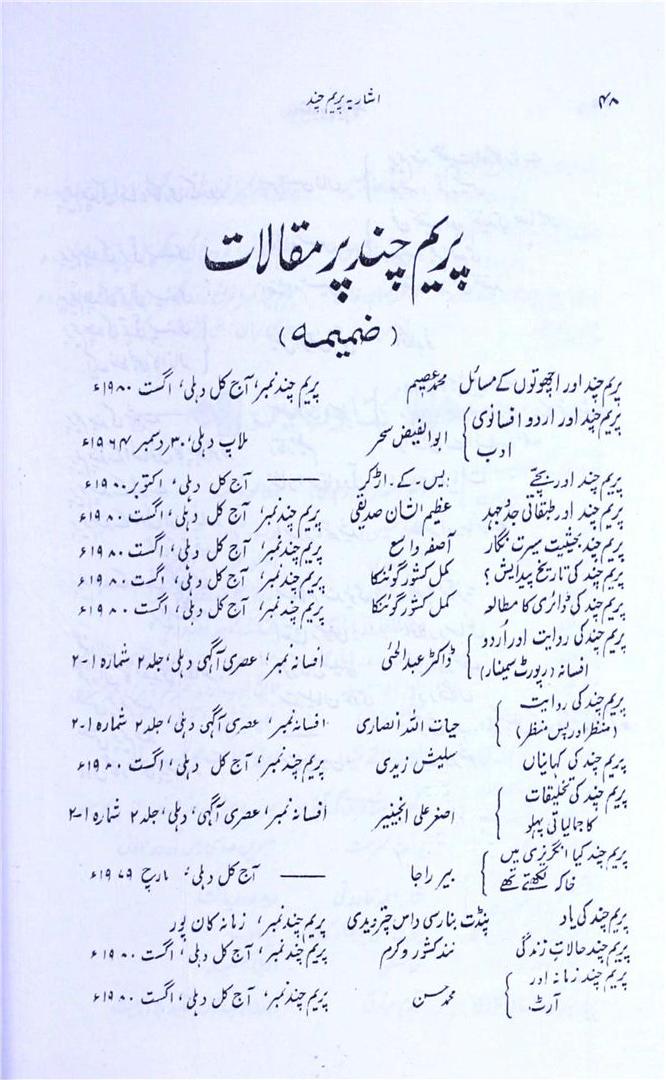 ۴۸ اشاریہ پریم چند
پریم چند پر مقالات
(ضمیمہ)
پریم چند اور اچھوتوں کے مسائل محمد عصیم پریم چند نمبر، آج کل دہلی، اگست ۱۹۸۰ء
پریم چند اور اردو افسانوی
ادب ابوالفیض سحر ملاپ دہلی، ۳۰ دسمبر ۱۹۶۴ء
پریم چند اور بچے یس۔ کے۔ اڑکر —— آج کل دہلی، اکتوبر ۱۹۸۰ء
پریم چند اور طبقاتی جدوجہد عظیم الشان صدیقی پریم چند نمبر، آج کل دہلی، اگست ۱۹۸۰ء
پریم چند بحیثیت سیرت نگار آصفہ واسع پریم چند نمبر، آج کل دہلی، اگست ۱۹۸۰ء
پریم چند کی تاریخ پیدایش؟ کمل کشور گوئنکا پریم چند نمبر، آج کل دہلی، اگست ۱۹۸۰ء
پریم چند کی ڈائری کا مطالعہ کمل کشور گوئنکا پریم چند نمبر، آج کل دہلی، اگست ۱۹۸۰ء
پریم چند کی روایت اور اُردو
افسانہ (رپورٹ سمینار) ڈاکٹر عبدالحئی افسانہ نمبر، عصری آگہی دہلی، جلد ۲ شمارہ ۱-۲
پریم چند کی روایت
(منظر اور پس منظر) حیات اللہ انصاری افسانہ نمبر، عصری آگہی دہلی، جلد ۲ شمارہ ۱-۲
پریم چند کی کہانیاں سلیش زیدی پریم چند نمبر، آج کل دہلی، اگست ۱۹۸۰ء
پریم چند کی تخلیقات
کا جمالیاتی پہلو اصغر علی انجینیر افسانہ نمبر، عصری آگہی، دہلی، جلد ۲ شمارہ ۱-۲
پریم چند کیا انگریزی میں
خاکہ لکھتے تھے بیر راجا —— آج کل دہلی، مارچ ۱۹۷۹ء
پریم چند کی یاد پنڈت بنارسی داس چترویدی پریم چند نمبر، زمانہ کان پور
پریم چند حالاتِ زندگی نند کشور وکرم پریم چند نمبر، آج کل دہلی، اگست ۱۹۸۰ء
پریم چند زمانہ اور
آرٹ محمد حسن پریم چند نمبر، آج کل دہلی، اگست ۱۹۸۰ء